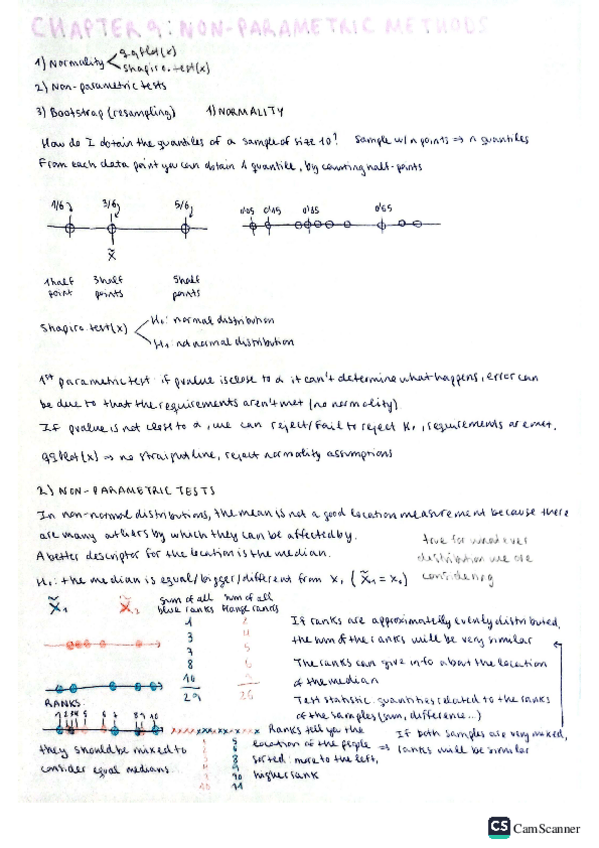 CHAPTER 9: NON-PARAMETRIC METHODS
1) Normality qqplot(x)
shapiro.test(x)
2) Non-parametric tests
3) Bootstrap (resampling) 1) NORMALITY
How do I obtain the quantiles of a sample of size 10? Sample w/ n points => n quantiles
From each data point you can obtain 1 quantile, by counting half-points
1/6 3/6 5/6 0'05 0'15 0'45 0'65
x̃
1 half point 3 half points 5 half points
Shapiro.test(x) H0: normal distribution
H1: not normal distribution
1st parametric test: if pvalue is close to α it can't determine what happens, error can
be due to that the requirements aren't met (no normality).
If pvalue is not close to α, we can reject/fail to reject H0, requirements are met.
qqplot(x) => no straight line, reject normality assumptions
2) NON-PARAMETRIC TESTS
In non-normal distributions, the mean is not a good location measurement because there
are many others by which they can be affected by.
A better descriptor for the location is the median.
true for whatever
distribution we are
considering
H0: the median is equal/bigger/different from x, (x̃1 = x0)
x̃1 x̃2 sum of all blue ranks sum of all orange ranks
1 2
3 4
7 5
8 6
10 9
29 26
If ranks are approximately evenly distributed,
the sum of the ranks will be very similar
The ranks can give info about the location
of the median
Test statistic: quantities related to the ranks
of the samples (sum, difference...)
RANKS:
1 2 3 4 5 6 7 8 9 10
they should be mixed to
consider equal medians...
Ranks tell you the
location of the people
sorted: more to the left,
higher rank
If both samples are very mixed,
=> ranks will be similar
CS CamScanner